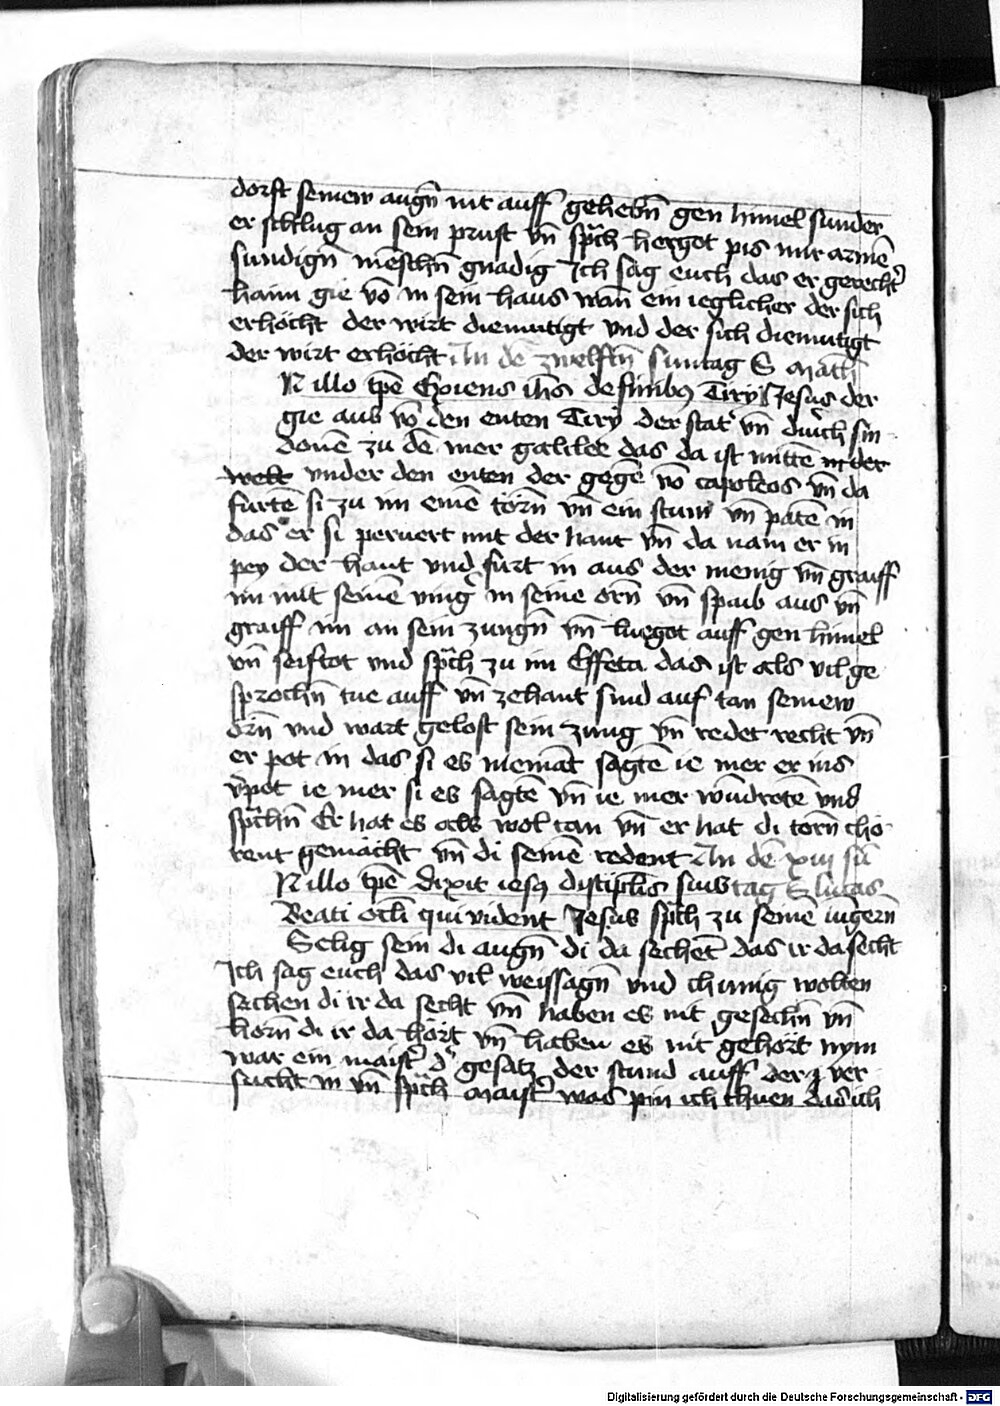 dorft seinew augñ nit auff gehebñ gen himel sunder
er schlug an sein prust vñ sp̄ch hergot pis mir armē
sundigñ mēschñ gnadig Ich sag euch das er gerecht̉
haim gie vō in sein haus wañ ein ieglicher der sich
erhöcht der wirt diemutigt vnd der sich diemutigt
der wirt erhöcht In dē zwelftñ suntag S Math
N illo tp̄e Exiens ih̄s de finibꝯ Tiry Jesus der
gie aus vō den enten Tiry der stat vñ durch sin
donē zu dē mer galilee das da ist mittē in der
welt vnder den enten der gegē vō capoleos vñ da
furtē si zu im einē törñ vñ ein stum vñ patē in
das er si peruert mit der hant vñ da nam er in
pey der hant vnd furt in aus der menig vñ graiff
im mit seinē ving̉ in seine orñ vñ spaib aus vñ
graiff im an sein zungñ vñ luegot auff gen himel
vñ seiftot vnd sp̄ch zu im Effeta das ist als vil ge
sprochñ tue auff vñ zehant sind auf tan seinew
orñ vnd wart gelost sein zung vñ redet recht vñ
er pot in das si es niemāt sagtē ie mer er ins
v̉pot ie mer si es sagtē vñ ie mer wūdrotē vnd
sp̄chñ Er hat es als wol tan vñ er hat di torñ cho
rent gemacht vñ di seinē redent In dē xiii sū
N illo tp̄e dixit iesꝯ discipl̄is suis tag S lucas
Beati ocl̄i qui vident Jesus sp̄ch zu seinē iūgerñ
Selig sein di augñ di da sechēt das ir da secht
Ich sag euch das vil weissagñ vnd chunig wolten
sechen di ir da secht vñ haben es nit gesechñ vñ
horñ di ir da hört vñ haben es nit gehört nym
war ein maist̉ d̉ gesatz der stund auff der ver
sucht in vñ sp̄ch Maist̉ was pin ich thuen das ich
Digitalisierung gefördert durch die Deutsche Forschungsgemeinschaft - DFG